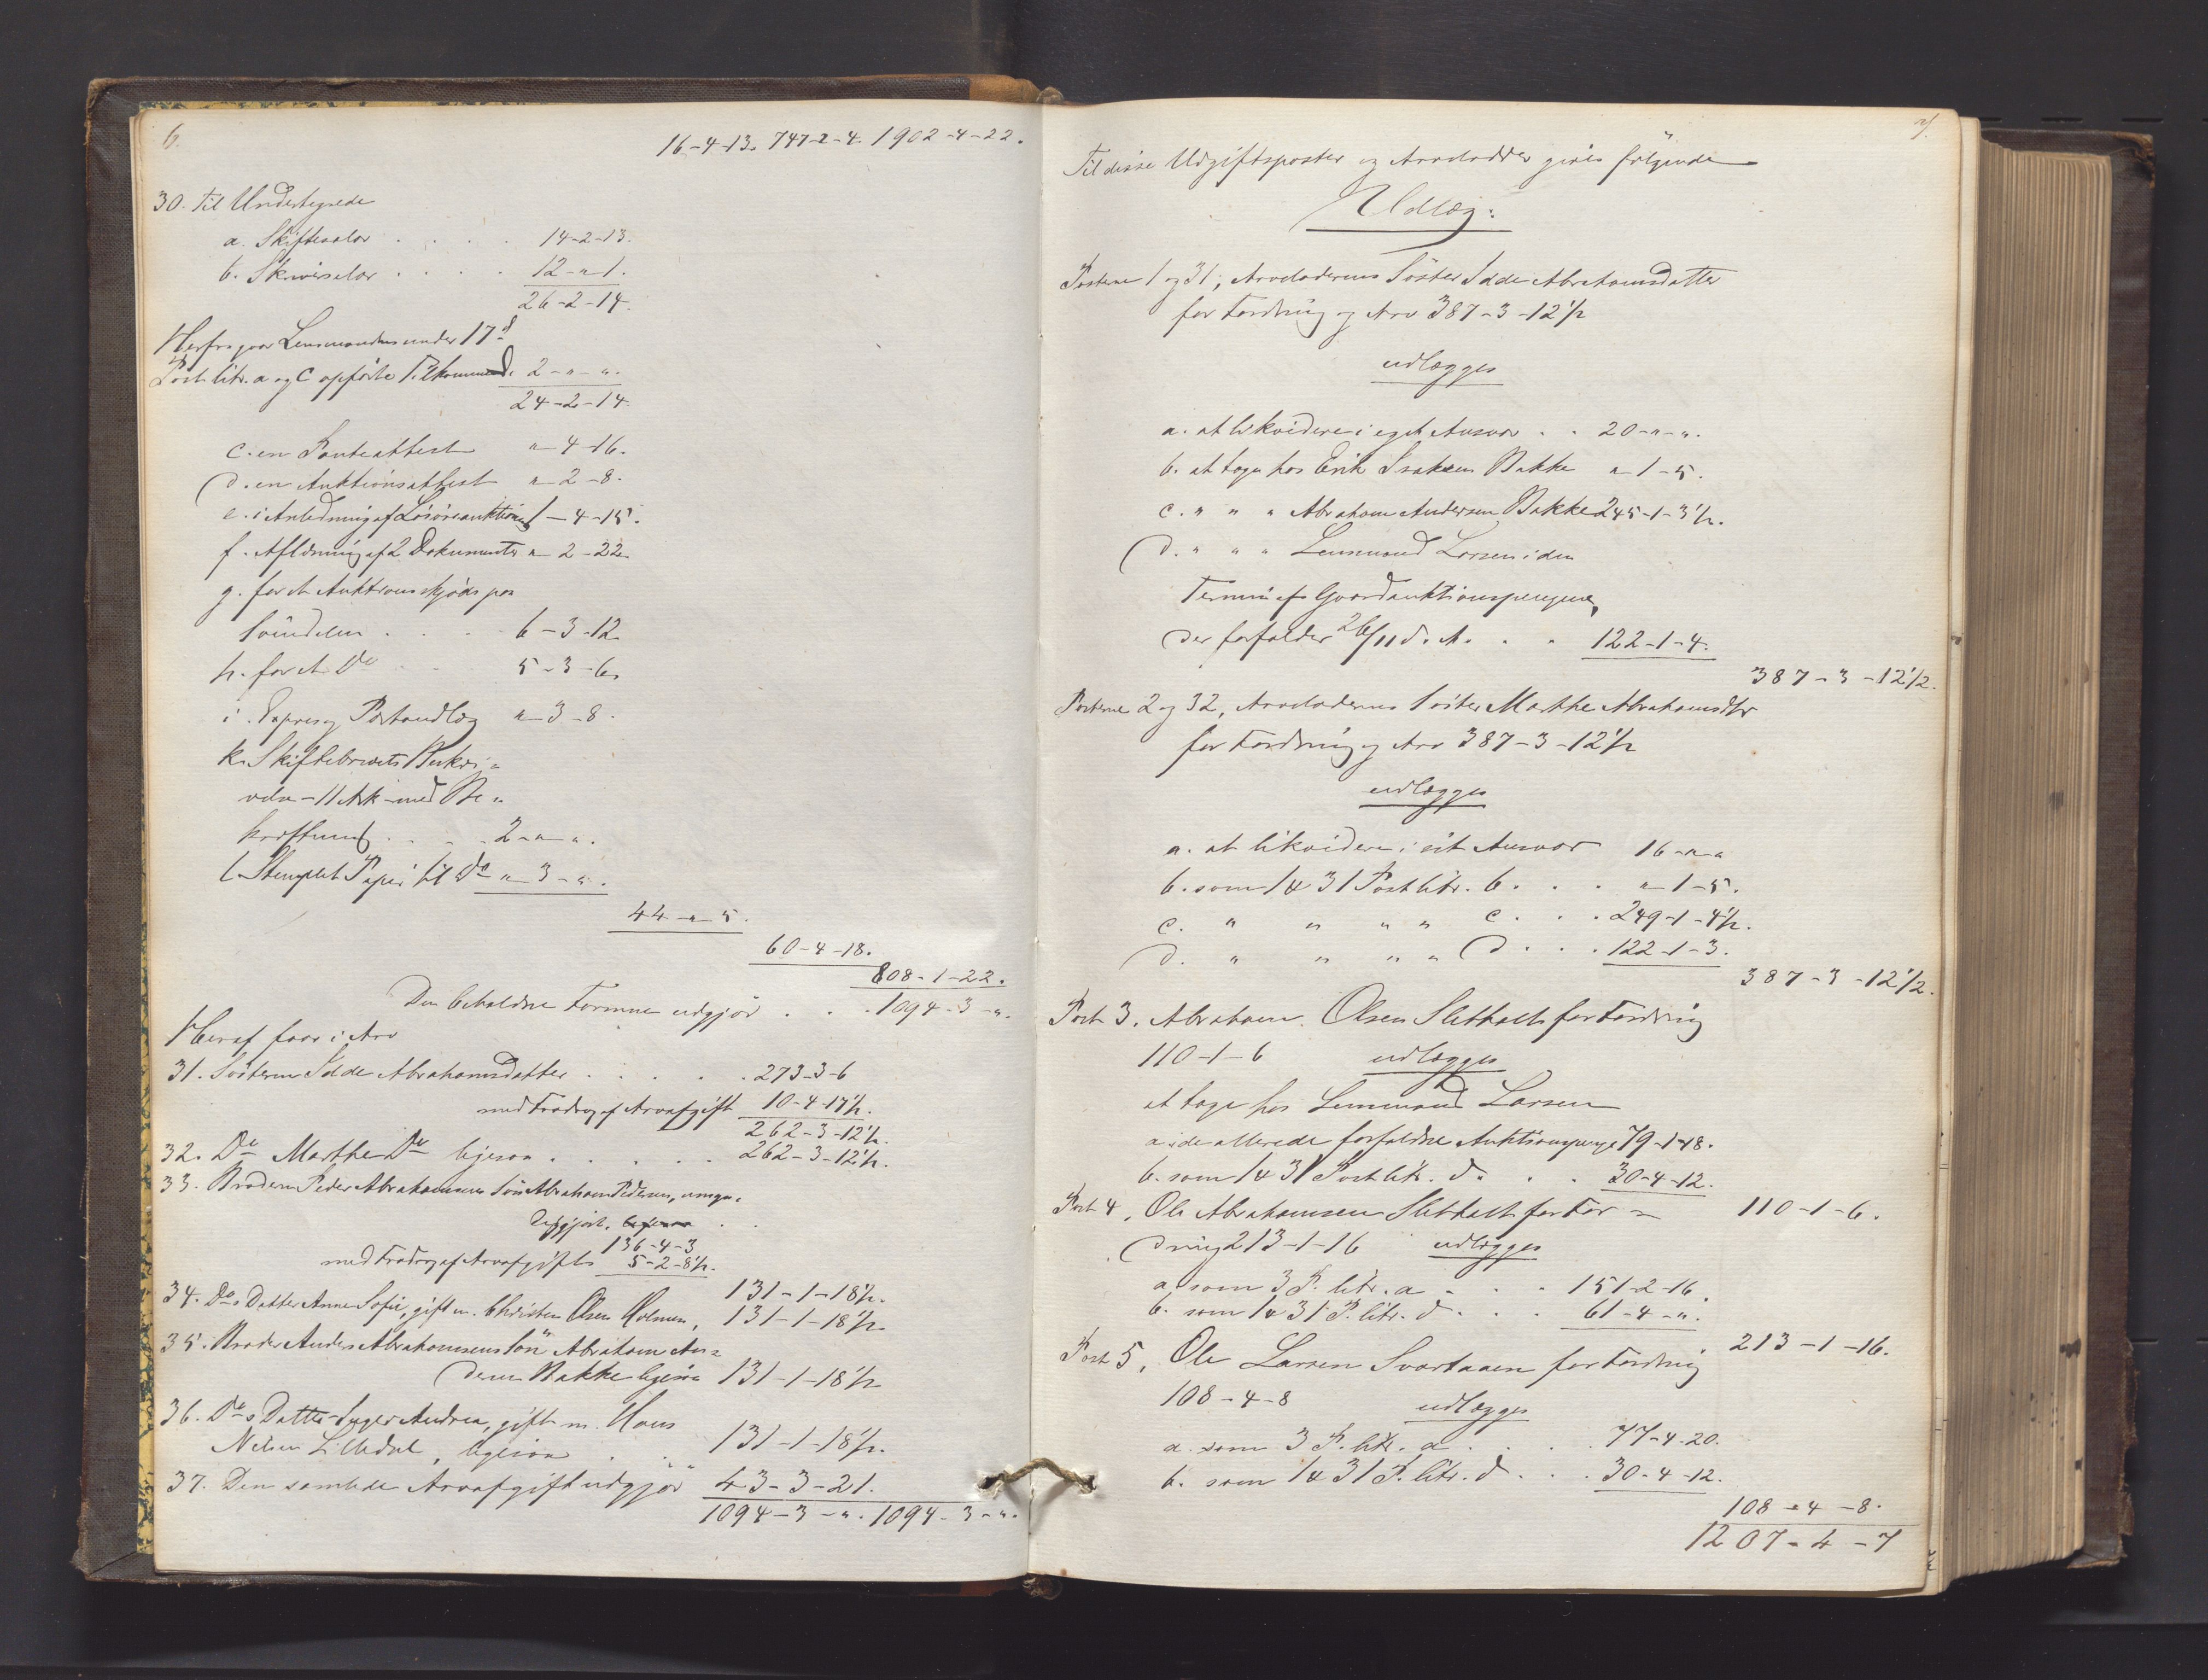 6.
16-4-13. 747-2-4. 1902-4-22.
30. Til Undertegnede
a. Skiftesalær . . . . 14-2-13.
b. Skriversalær . . . . 12-"-1.
26-2-14.
Herfra gaar Lensmandens under 17de
Post litr. a og c opførte Tilkommende. 2-"-".
24-2-14.
c. en Panteattest "-4-16.
d. en Auktionsattest "-2-8.
e. i Anledning af Løsøreauktionen 1-4-15.
f. Aflæsning af 2 Dokumenter "-2-22.
g. for et Auktionsskjøde paa
Svindelen . . . . 6-3-12.
h. for et Do . . 5-3-6.
i. Expres og Portoudlæg "-3-8.
k. Skiftebrevets Beskri-
velse - 11 Ark - med Be-
kræftning . . . 2-"-".
l. Stemplet Papir til Do "-3-".
44-"-5.
60-4-18.
808-1-22.
Den beholdne Formue udgjør . . . 1094-3-".
Heraf faar i Arv
31. Søsteren Idde Abrahamsdatter . . . . . 273-3-6
med Fradrag af Arveafgift 10-4-17½.
262-3-12½.
32. Do Marthe Do ligesaa . . . . . 262-3-12½.
33. Broderen Peder Abrahamsens Søn Abraham Pedersen, umyn-
diggjort, ligesaa . .
136-4-3
med Fradrag af Arveafgift 5-2-8½.
131-1-18½.
34. Dos Datter Anne Sofie, gift m. Christen Olsen Holmen, 131-1-18½.
35. Broder Anders Abrahamsens Søn Abraham An-
dersen Bakke ligesaa 131-1-18½
36. Dos Datter Inger Andrea, gift m. Hans
Nilsen Lilledal, ligesaa . . 131-1-18½.
37. Den samlede Arveafgift udgjør 43-3-21.
1094-3-". 1094-3-".
7.
Til disse Udgiftsposter og Arvelodder gives følgende
Udlæg:
Posterne 1 og 31, Arveladerens Søster Idde Abrahamsdatter
for Fordring og Arv 387-3-12½
udlægges
a. at likvidere i eget Ansvar . . 20-"-".
b. at tage hos Erik Isaksen Bakke "-1-5.
c. " " " Abraham Andersen Bakke 245-1-3½.
d. " " " Lensmand Larsen i den
Termin af Gaardauktionspengene,
der forfalder 26/11 d. A. . . 122-1-4.
387-3-12½.
Posterne 2 og 32, Arveladerens Søster Marthe Abrahamsdtr
for Fordring og Arv 387-3-12½
udlægges
a. at likvidere i sit Ansvar 16-"-"
b. som 1 & 31 Post litr. b. . . . "-1-5.
c. " " " " c . . . 249-1-4½.
d. " " " " d . . . 122-1-3.
387-3-12½.
Post 3. Abraham Olsen Sletholt for Fordring
110-1-6 udlægges
at tage hos Lensmand Larsen
a. i de allerede forfaldne Auktionspenge 79-1-18.
b. som 1 & 31 Post litr. d. . . . 30-4-12.
110-1-6.
Post 4. Ole Abrahamsen Sletholt for For-
dring 213-1-16 udlægges
a. som 3 P. litr. a . . . 151-2-16.
b. som 1 & 31 P. litr. d . . . 61-4-".
213-1-16.
Post 5. Ole Larsen Svartaaen for Fordring
108-4-8 udlægges
a. som 3 P. litr. a . . . . 77-4-20.
b. som 1 & 31 P. litr. d . . . 30-4-12.
108-4-8.
1207-4-7